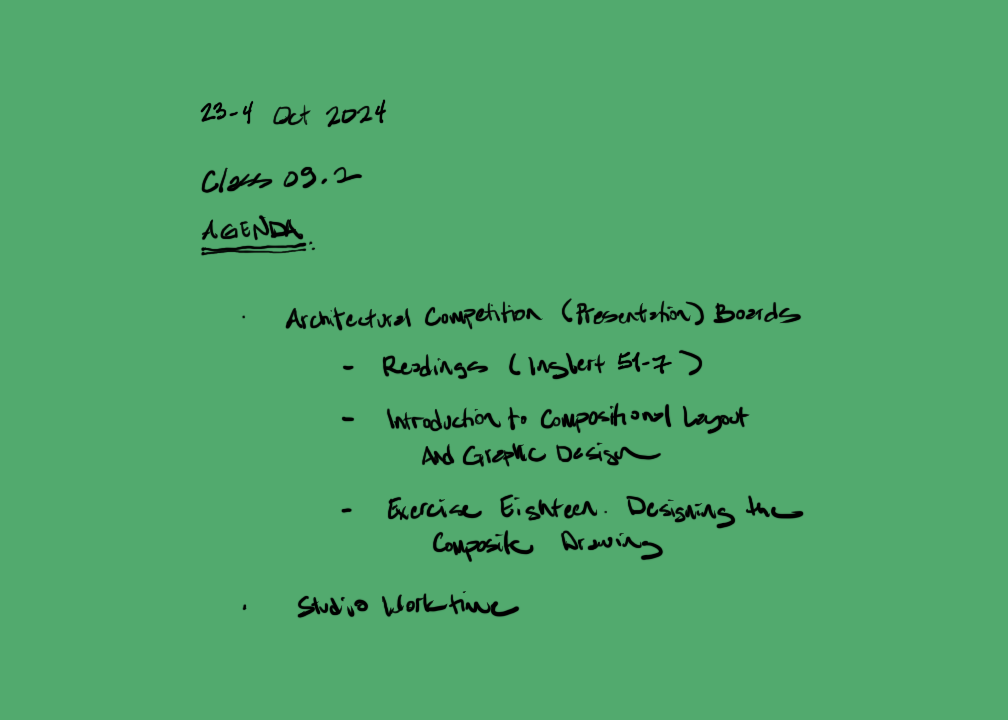 23-4 Oct 2024
Class 09.2
AGENDA:
· Architectural Competition (Presentation) Boards
- Readings (Inglert 51-7)
- Introduction to Compositional Layout
And Graphic Design
- Exercise Eighteen. Designing the
Composite Drawing
· Studio Worktime